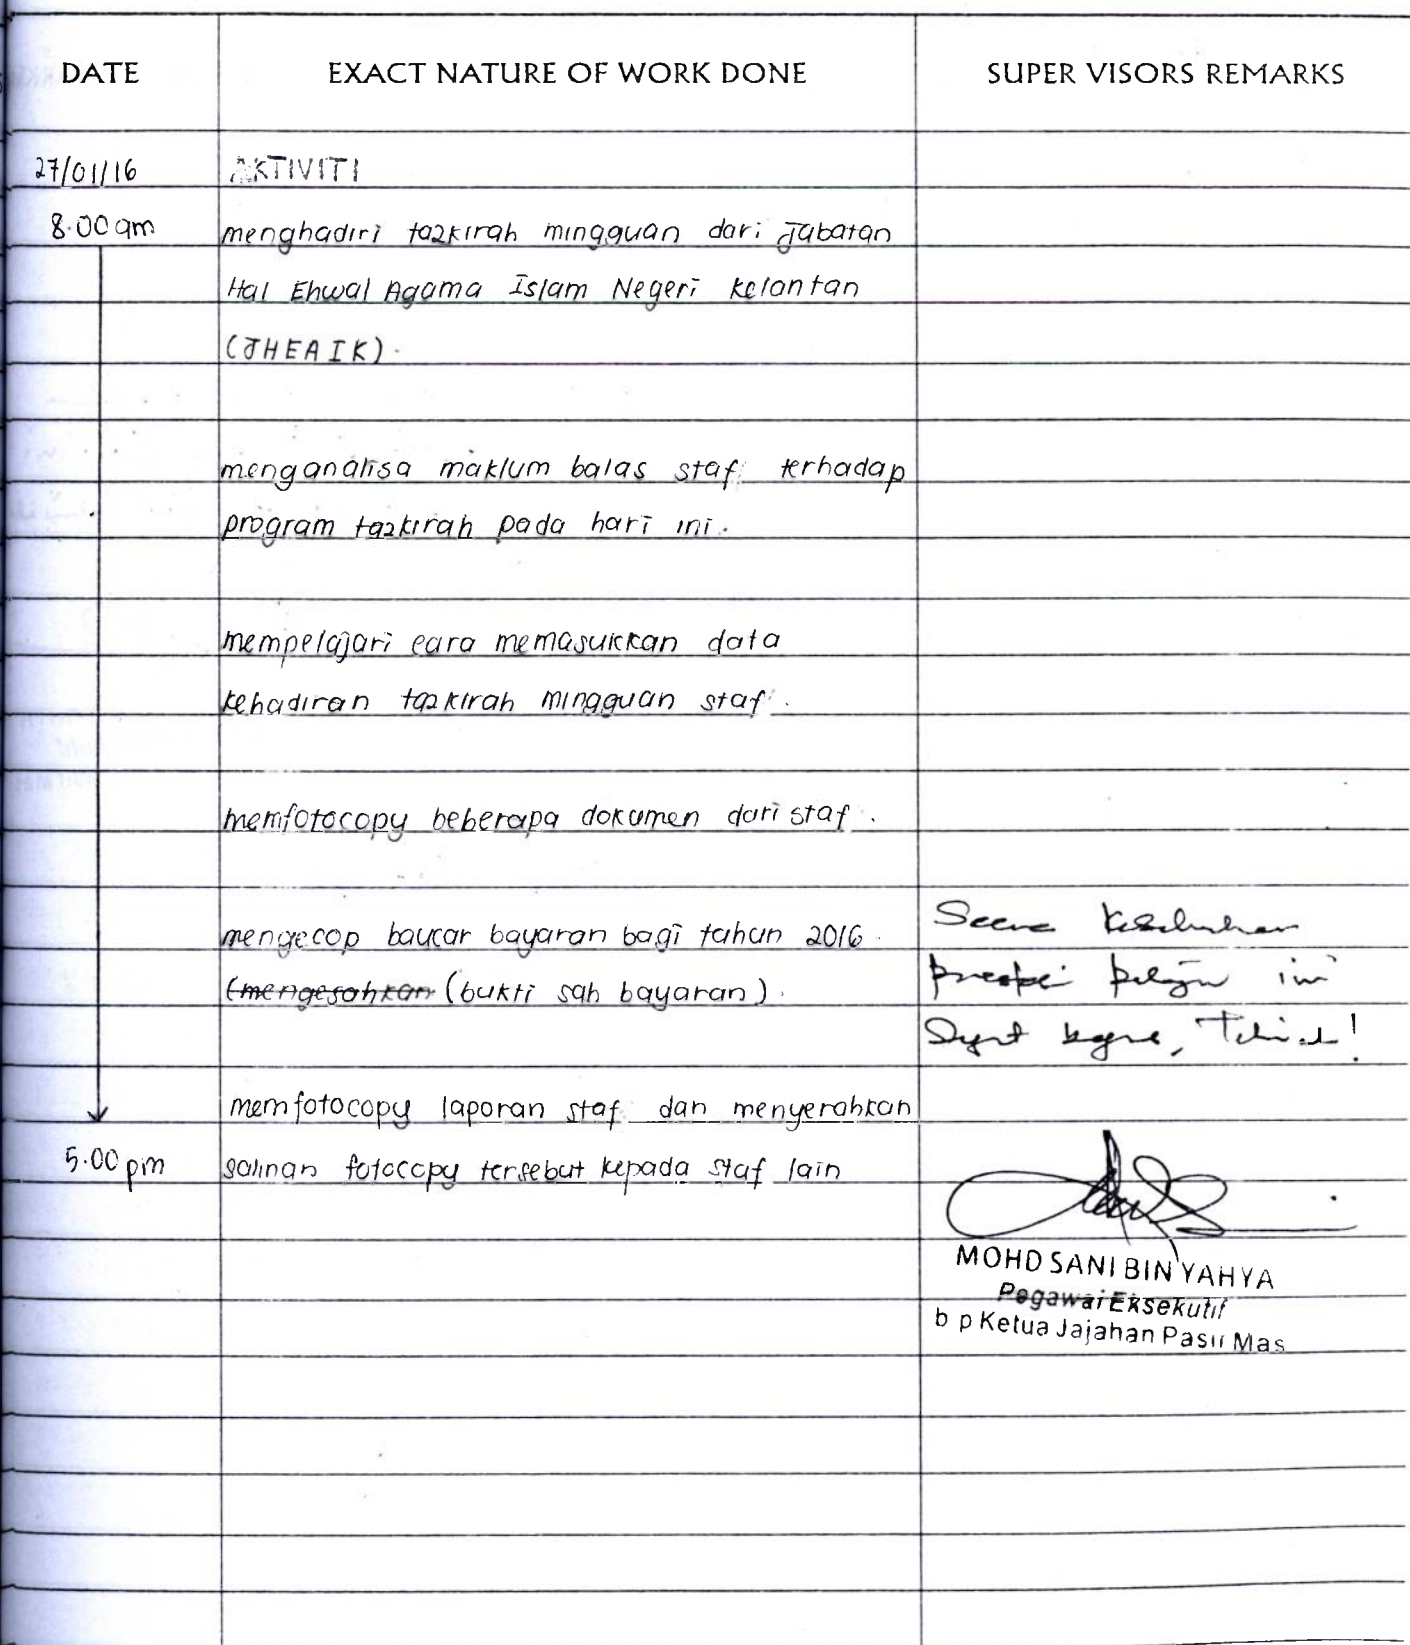 DATE EXACT NATURE OF WORK DONE SUPER VISORS REMARKS
27/01/16 AKTIVITI
8.00 am menghadiri tazkirah mingguan dari Jabatan
Hal Ehwal Agama Islam Negeri Kelantan
(JHEAIK).
menganalisa maklum balas staf terhadap
program tazkirah pada hari ini.
mempelajari cara memasukkan data
kehadiran tazkirah mingguan staf.
memfotocopy beberapa dokumen dari staf.
mengecop baucar bayaran bagi tahun 2016.
(mengesahkan (bukti sah bayaran).
memfotocopy laporan staf dan menyerahkan
5.00 pm salinan fotocopy tersebut kepada staf lain
Secara keseluruhan
prestasi pelajar ini
Sgt bagus,
MOHD SANI BIN YAHYA
Pegawai Eksekutif
b p Ketua Jajahan Pasir Mas